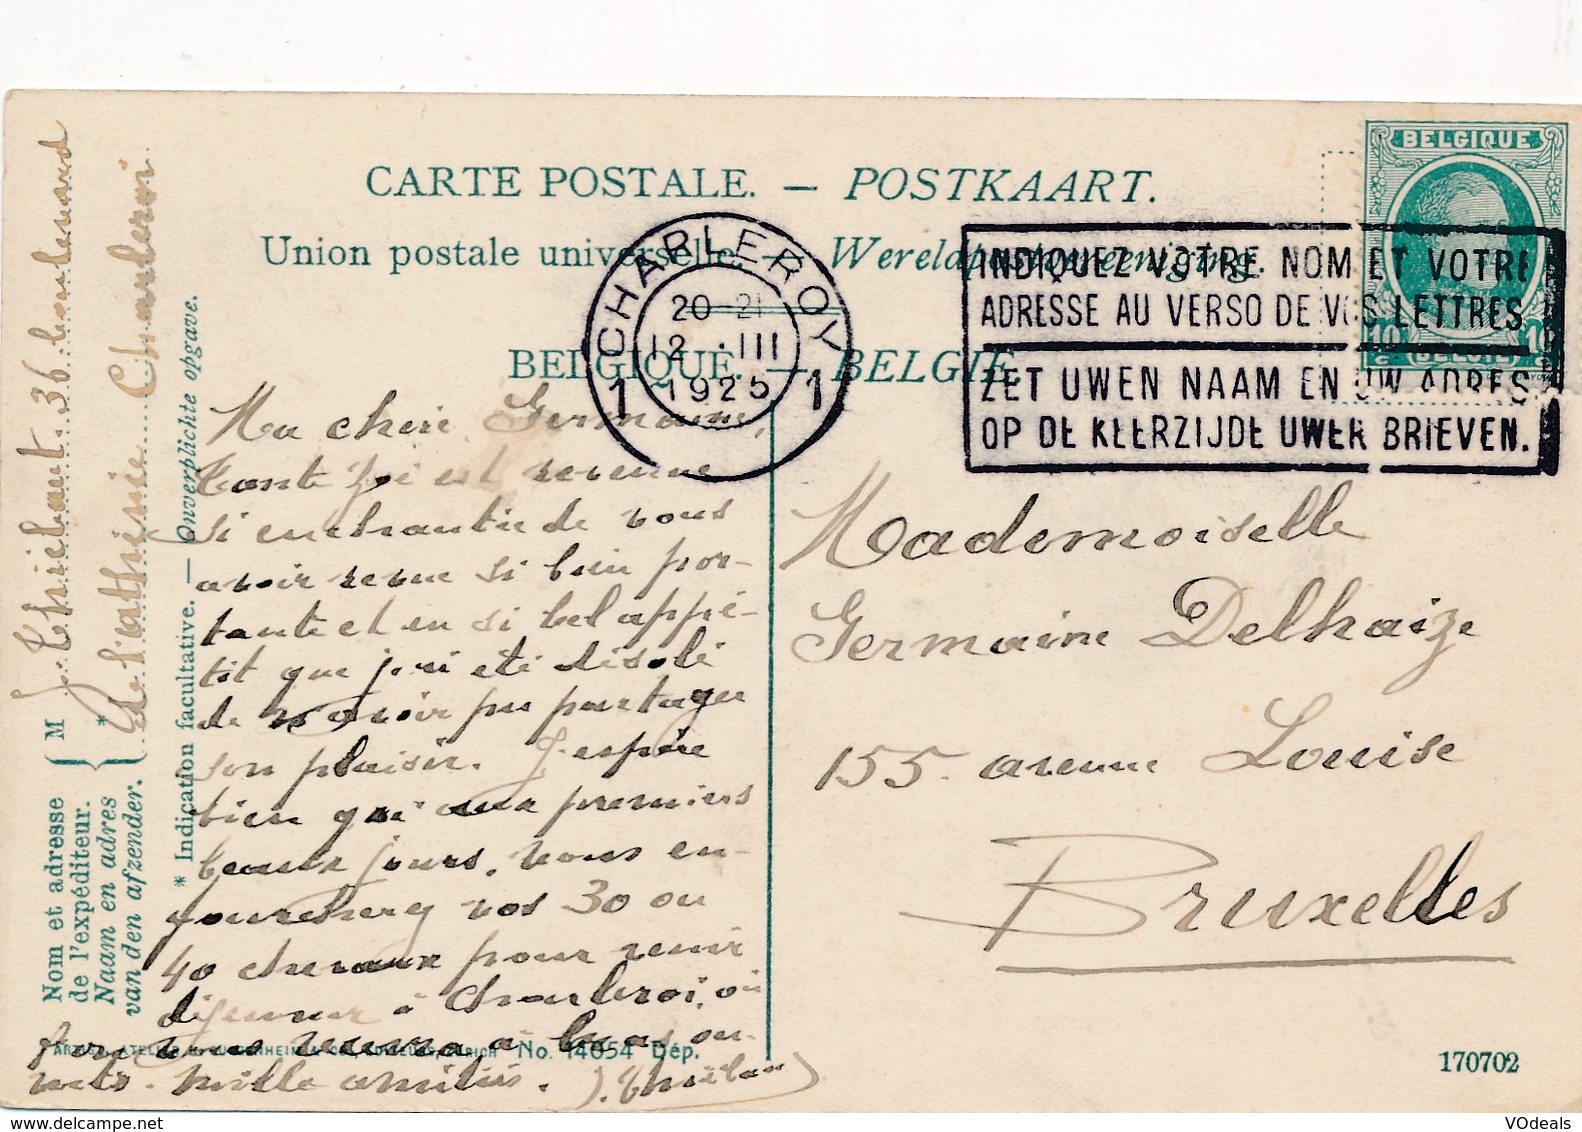 CARTE POSTALE. — POSTKAART.
Union postale universelle. — Wereldpostvereeniging.
BELGIQUE. — BELGIE.
CHARLEROY
20-21
12 . III
1925
1 1
INDIQUEZ VOTRE NOM ET VOTRE
ADRESSE AU VERSO DE VOS LETTRES
ZET UWEN NAAM EN UW ADRES
OP DE KEERZIJDE UWER BRIEVEN.
BELGIQUE
10 10
C C
BELGIË
Nom et adresse
de l'expéditeur.
Naam en adres
van den afzender.
M J. Thiébaut. 36 boulevard
* de l'athénée Charleroi.
* Indication facultative. — Onverplichte opgave.
Ma chère Germaine,
tante est revenue
si enchantée de vous
avoir revue si bien por-
tante et en si bel appé-
tit que j'ai été désolé
de n'avoir pu partager
son plaisir. J'espère
bien que aux premiers
beaux jours, vous en-
fourcherez vos 30 ou
40 chevaux pour venir
déjeuner à Charleroi, où
vous à bras ou-
verts. Mille amitiés. J. Thiébaut
Mademoiselle
Germaine Delhaize
155 avenue Louise
Bruxelles
No. 14654 Dép.
170702
VOdeals